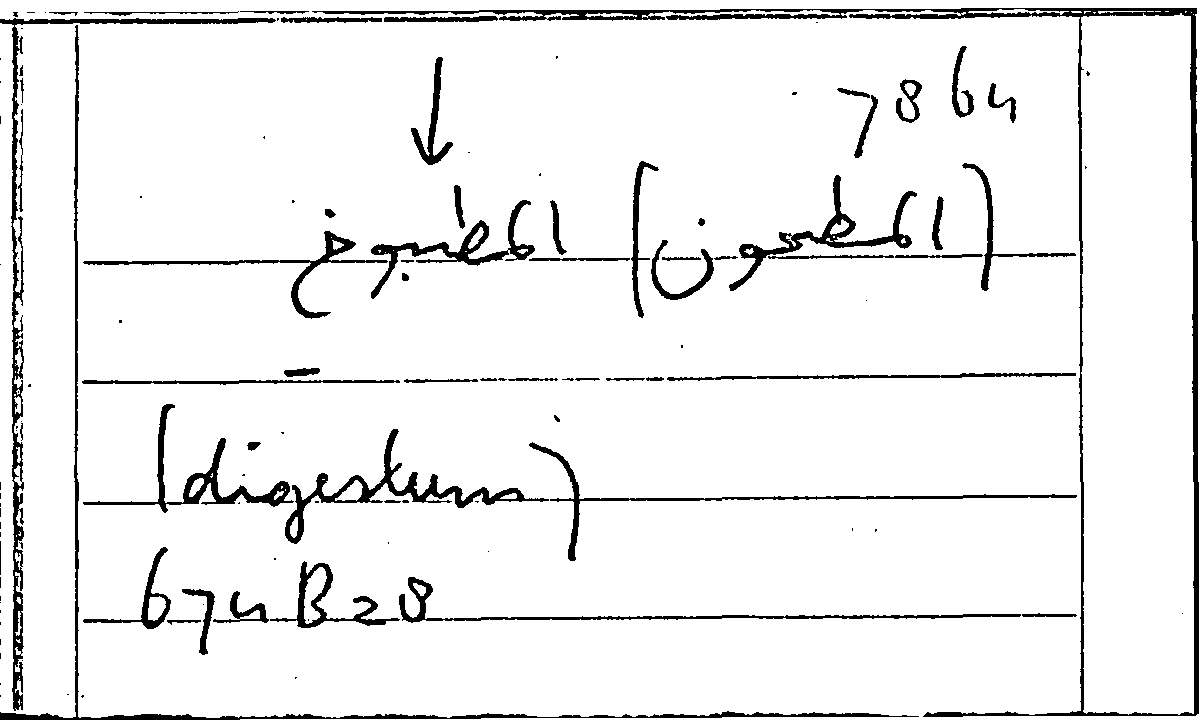 7864
(المطحون) المطبوخ
(digestum)
674B28